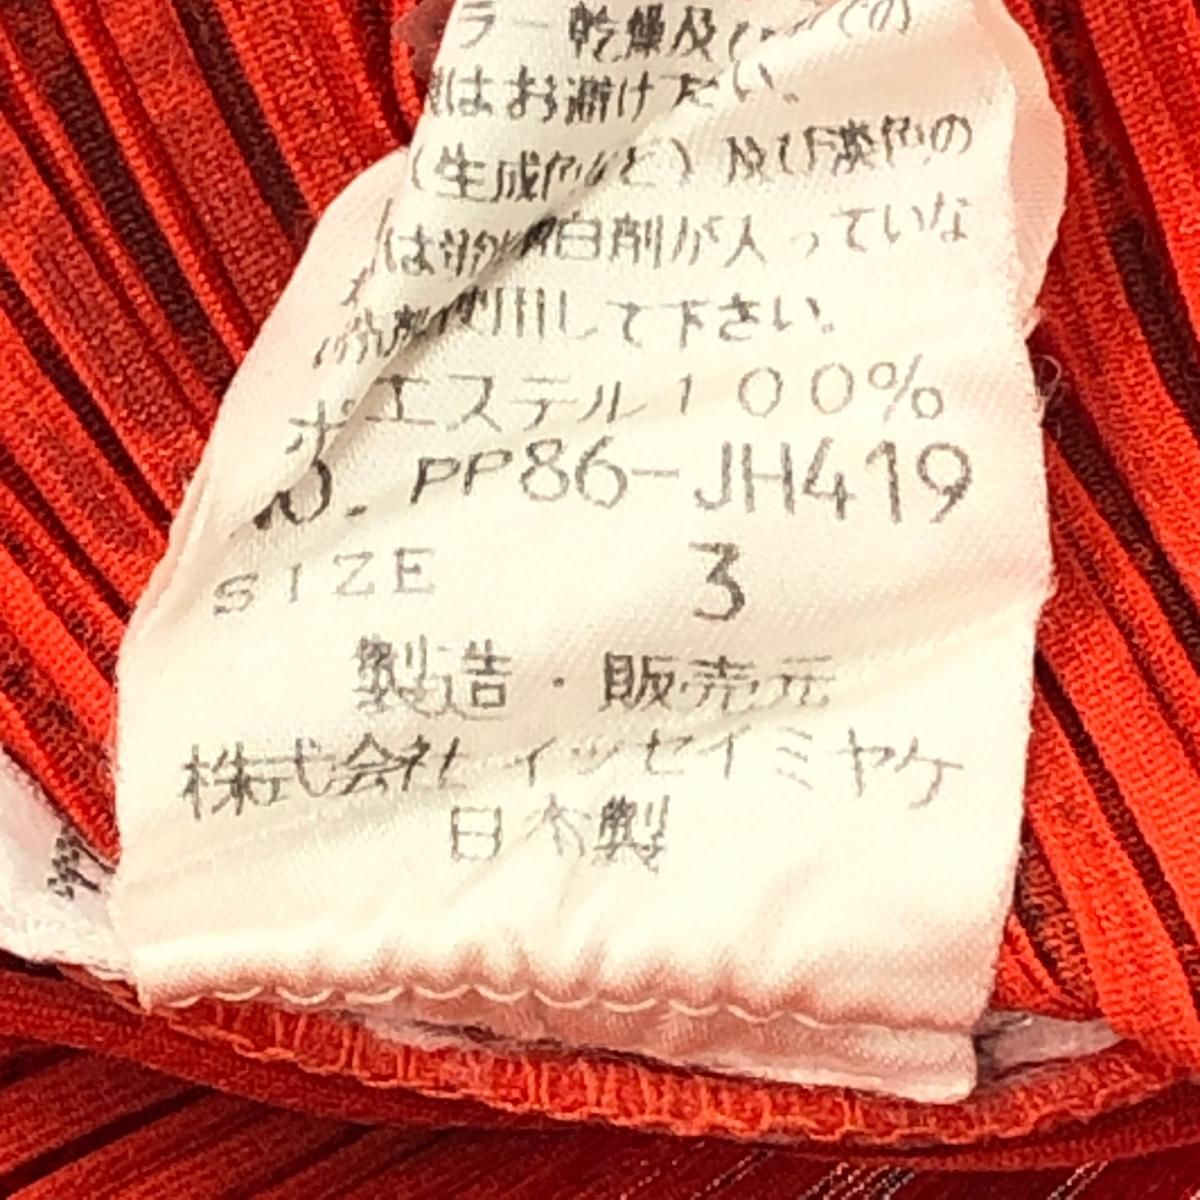 ラー乾燥及び
はお避け下さい。
(生成色など)及び淡色の
は蛍光増白剤が入っていな
い洗剤を使用して下さい。
ポリエステル100%
NO. PP86-JH419
SIZE 3
製造・販売元
株式会社イッセイミヤケ
日本製